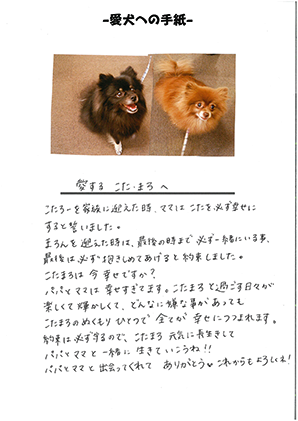 -愛犬への手紙-
愛する こた・まろ へ
こたろーを家族に迎えた時、ママはこたを必ず幸せに
すると誓いました。
まろんを迎えた時は、最後の時まで必ず一緒にいる事、
最後は必ず抱きしめてあげると約束しました。
こたまろは今幸せですか？
パパとママは幸せすぎます。こたまろと過ごす日々が
楽しくて輝かしくて、どんなに嫌な事があっても
こたまろのぬくもりひとつで全てが幸せにつつまれます。
約束は必ず守るので、こたまろ元気に長生きして
パパとママと一緒に生きていこうね!!
パパとママと出会ってくれて ありがとう♥これからもよろしくね!